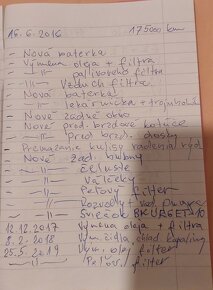 16.6.2016 175000 km
- Nová baterka
- Výmena oleja + filtra
- -||- palivového filtra
- -||- Vzduch filtra
- Nová baterka
- -||- lekárnička + trojuholník
- Nové zadné okno
- Nové pred. brzdové kotúče
- -||- Pred. brzd. dosky
- Premazanie kulisy radenia rýchl.
- Nové zad. bubny
- -||- čeľuste
- -||- Valčeky
- -||- Peľový filter
- -||- Rozvody + vod. pumpa
- -||- Sviečok BKUR6ET-10
12.12.2017 Výmena oleja + filtra
8.2.2018 Vým. čidla chlad. kvapaliny
25.5.2019 Vým. olej filter
-||- Peľov. filter